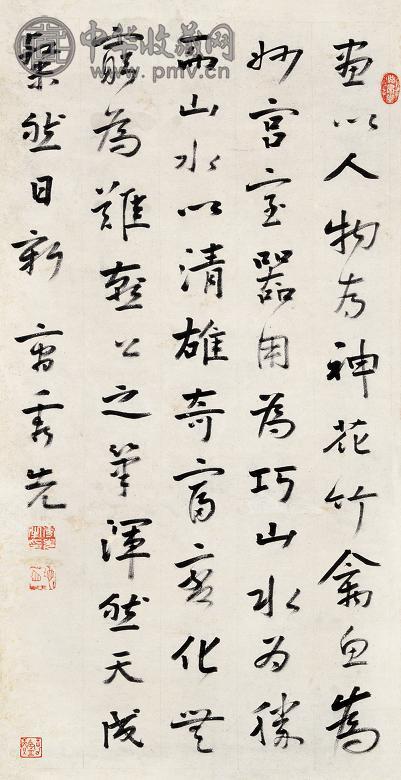 中华收藏网
www.pmv.cn
畫以人物為神花竹禽魚為
妙宮室器用為巧山水為勝
而山水以清雄奇富變化無
窮為難燕公之筆渾然天成
粲然日新 曹秀先